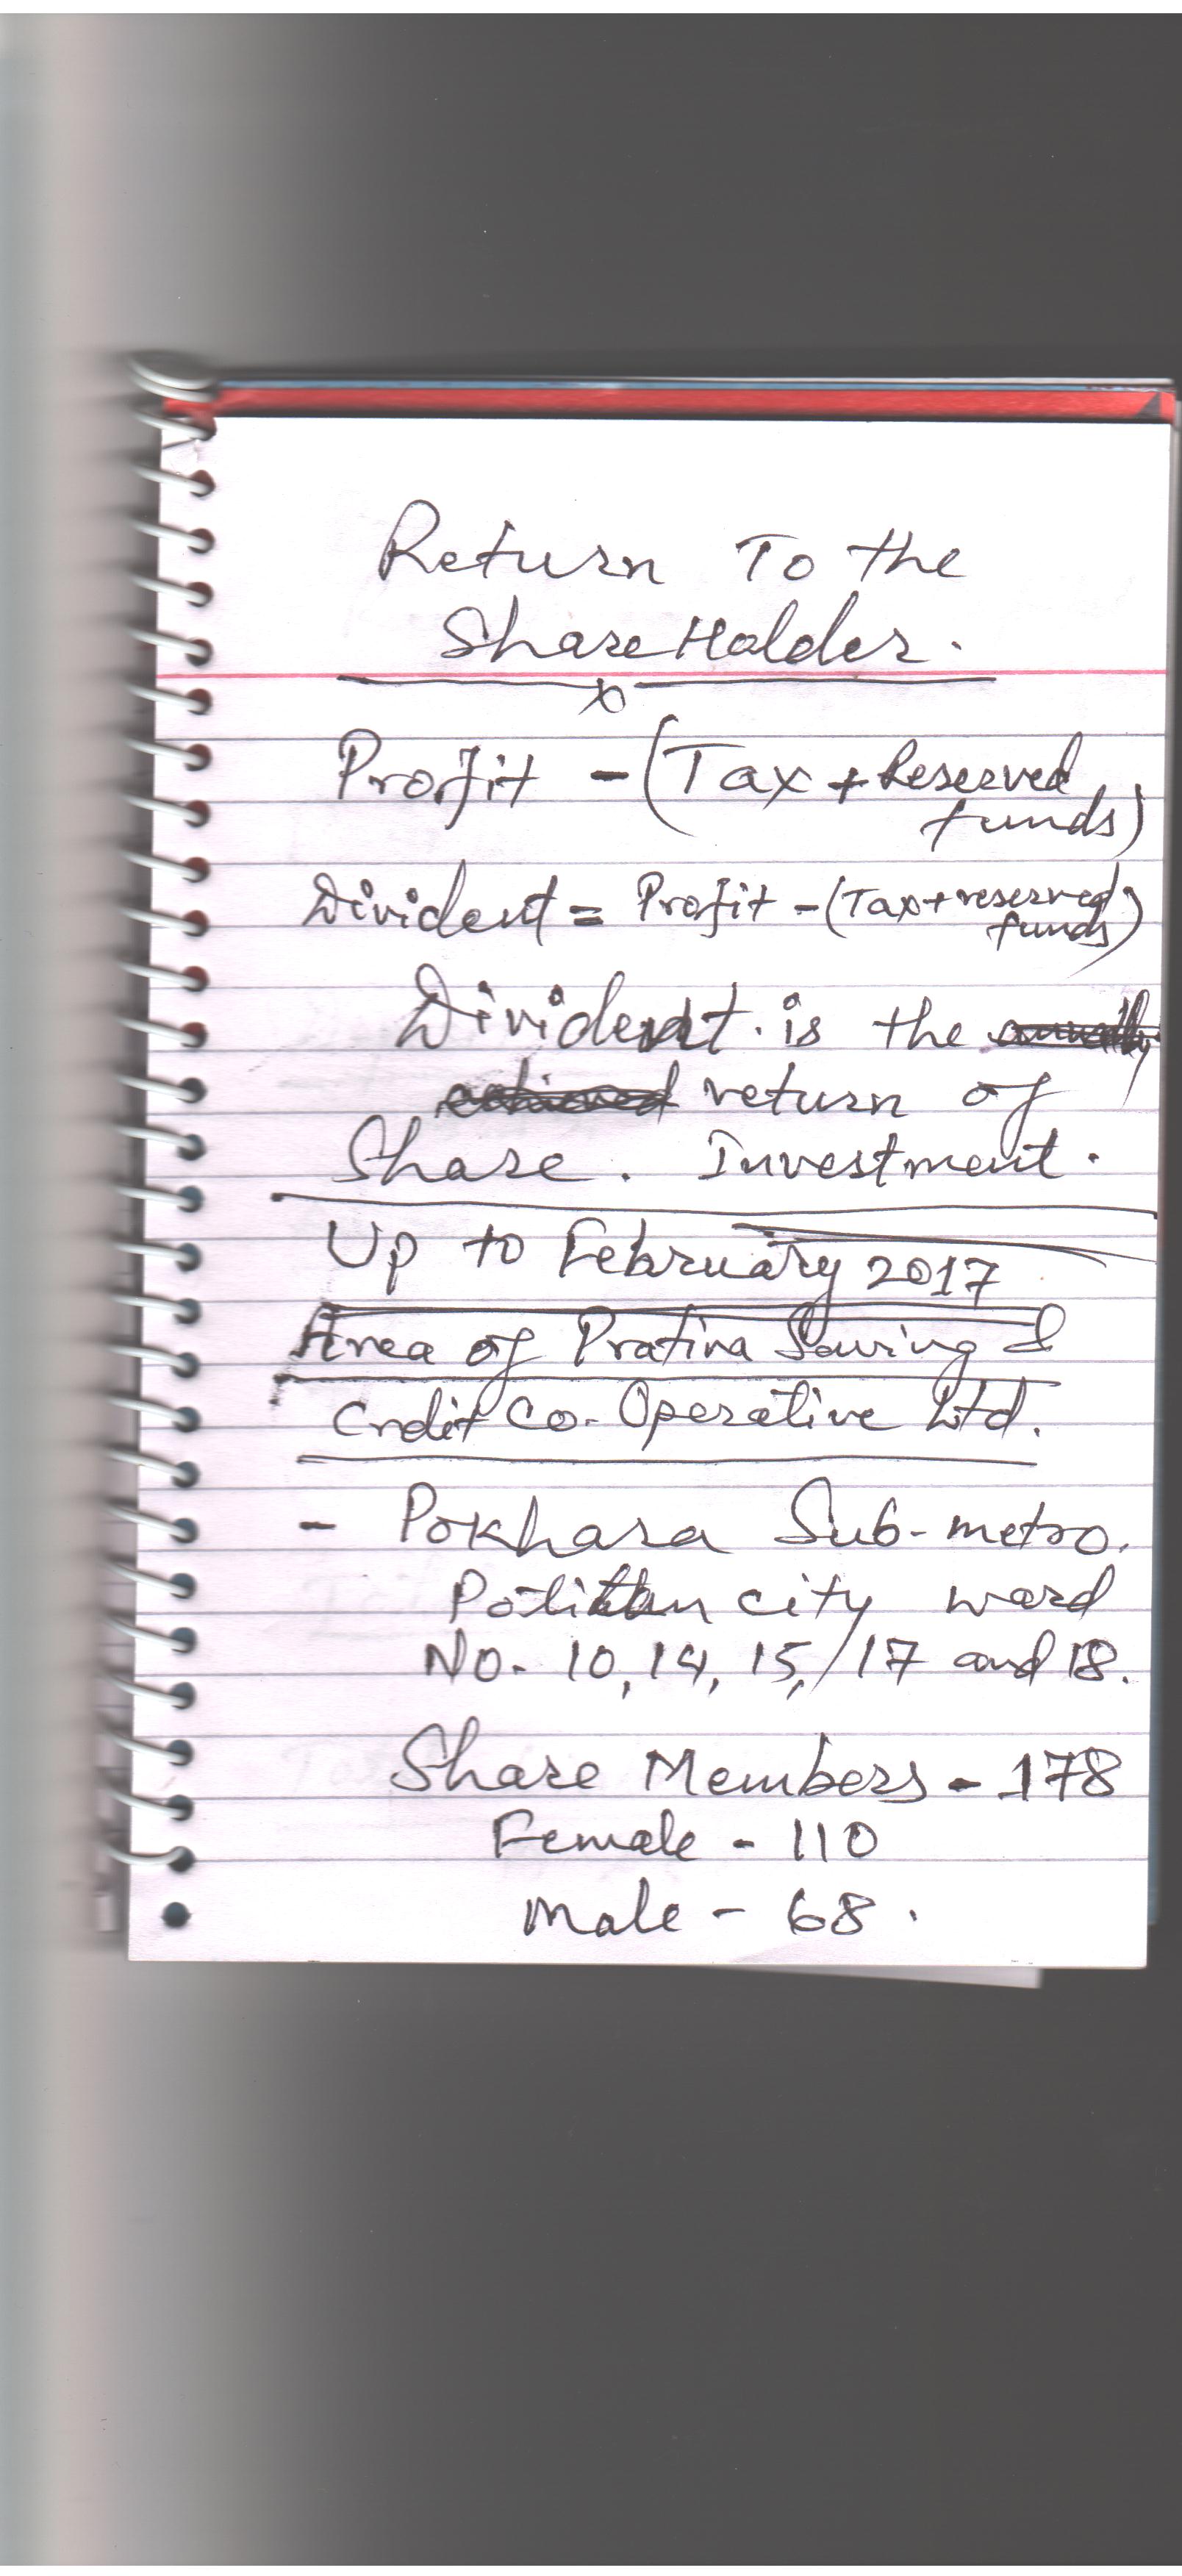 Return To the
Share Holder.
Profit - (Tax + Reserved
funds)
Divident = Profit - (Tax + reserved
funds)
Divident. is the
return of
Share. Investment.
Up to February 2017
Area of Prativa Saving &
Crdit Co-Operative Ltd.
- Pokhara Sub-metro.
city ward
No- 10, 14, 15, /17 and 18.
Share Members - 178
Female - 110
Male - 68.